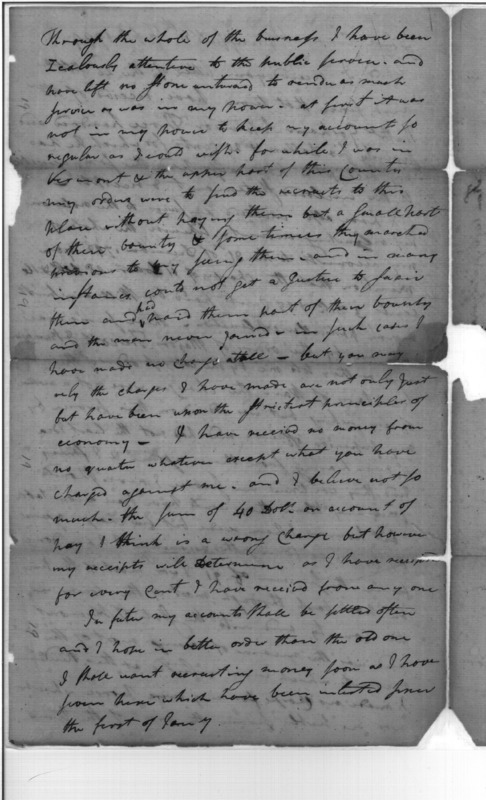 Through the whole of the business I have been
Zealously attentive to the public service. and
have left no stone unturned to render as much
service as was in my power. at first it was
not in my power to keep my account so
regular as I could wish. for while I was in
Vermont & the upper part of this Country
my orders were to send the recruits to this
place without paying them but a small part
of their bounty & some times they marched
previous to my seeing them. and in many
instances could not get a Justice to swair
them and had paid them part of their bounty
and the men never joined. in such cases I
have made no charge atall — but you may
rely the charges I have made are not only Just
but have been upon the strictest principles of
economy — I have recied no money from
no quater whatever except what you have
charged against me. and I believe not so
much. the sum of 40 Dols. on account of
pay I think is a wrong charge but however
my receipts will Determine as I have receipts
for every cent I have recied from any one
In futer my accounts shall be settled often
and I hope in better order than the old one
I shall want recruiting money soon as I have
seven here which have been inlisted since
the first of Jany.